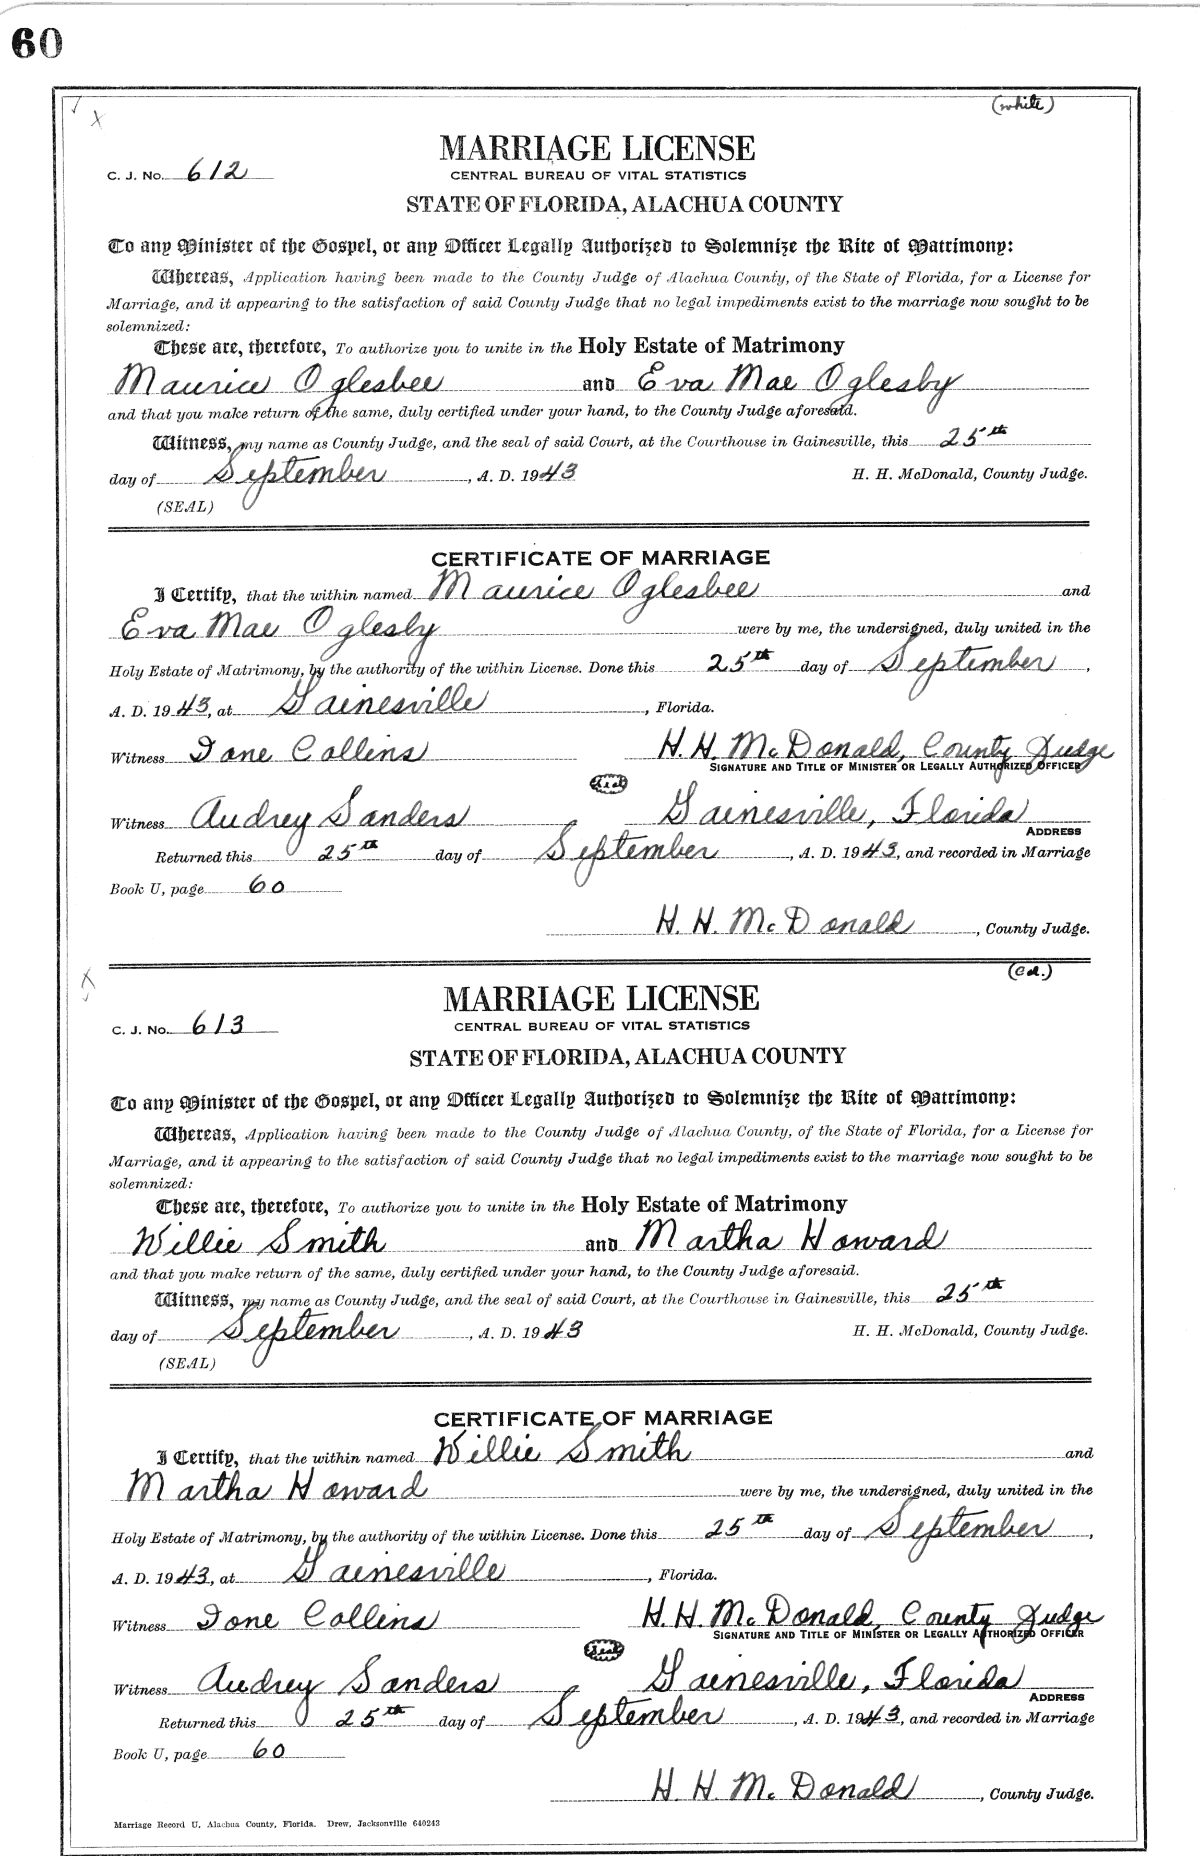 60
(white)
MARRIAGE LICENSE
C. J. No. 612
CENTRAL BUREAU OF VITAL STATISTICS
STATE OF FLORIDA, ALACHUA COUNTY
To any Minister of the Gospel, or any Officer Legally Authorized to Solemnize the Rite of Matrimony:
Whereas, Application having been made to the County Judge of Alachua County, of the State of Florida, for a License for
Marriage, and it appearing to the satisfaction of said County Judge that no legal impediments exist to the marriage now sought to be
solemnized:
These are, therefore, To authorize you to unite in the Holy Estate of Matrimony
Maurice Oglesbee and Eva Mae Oglesby
and that you make return of the same, duly certified under your hand, to the County Judge aforesaid.
Witness, my name as County Judge, and the seal of said Court, at the Courthouse in Gainesville, this 25th
day of September, A. D. 1943 H. H. McDonald, County Judge.
(SEAL)
CERTIFICATE OF MARRIAGE
I Certify, that the within named Maurice Oglesbee and
Eva Mae Oglesby were by me, the undersigned, duly united in the
Holy Estate of Matrimony, by the authority of the within License. Done this 25th day of September,
A. D. 1943, at Gainesville, Florida.
Witness Ione Collins H. H. McDonald, County Judge
SIGNATURE AND TITLE OF MINISTER OR LEGALLY AUTHORIZED OFFICER
Seal
Witness Audrey Sanders Gainesville, Florida
ADDRESS
Returned this 25th day of September, A. D. 1943, and recorded in Marriage
Book U, page 60
H. H. McDonald, County Judge.
(Cd.)
MARRIAGE LICENSE
C. J. No. 613
CENTRAL BUREAU OF VITAL STATISTICS
STATE OF FLORIDA, ALACHUA COUNTY
To any Minister of the Gospel, or any Officer Legally Authorized to Solemnize the Rite of Matrimony:
Whereas, Application having been made to the County Judge of Alachua County, of the State of Florida, for a License for
Marriage, and it appearing to the satisfaction of said County Judge that no legal impediments exist to the marriage now sought to be
solemnized:
These are, therefore, To authorize you to unite in the Holy Estate of Matrimony
Willie Smith and Martha Howard
and that you make return of the same, duly certified under your hand, to the County Judge aforesaid.
Witness, my name as County Judge, and the seal of said Court, at the Courthouse in Gainesville, this 25th
day of September, A. D. 1943 H. H. McDonald, County Judge.
(SEAL)
CERTIFICATE OF MARRIAGE
I Certify, that the within named Willie Smith and
Martha Howard were by me, the undersigned, duly united in the
Holy Estate of Matrimony, by the authority of the within License. Done this 25th day of September,
A. D. 1943, at Gainesville, Florida.
Witness Ione Collins H. H. McDonald, County Judge
SIGNATURE AND TITLE OF MINISTER OR LEGALLY AUTHORIZED OFFICER
Seal
Witness Audrey Sanders Gainesville, Florida
ADDRESS
Returned this 25th day of September, A. D. 1943, and recorded in Marriage
Book U, page 60
H. H. McDonald, County Judge.
Marriage Record U, Alachua County, Florida. Drew, Jacksonville 640243